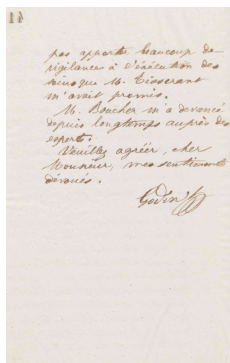 pas apporté beaucoup de
vigilance à l'exécution des
que M. Tisserant
m'avait promis.
M. Boucher m'a devancé
depuis longtemps auprès des
experts.
Veuillez agréer, cher
Monsieur, mes sentiments
dévoués.
Godin